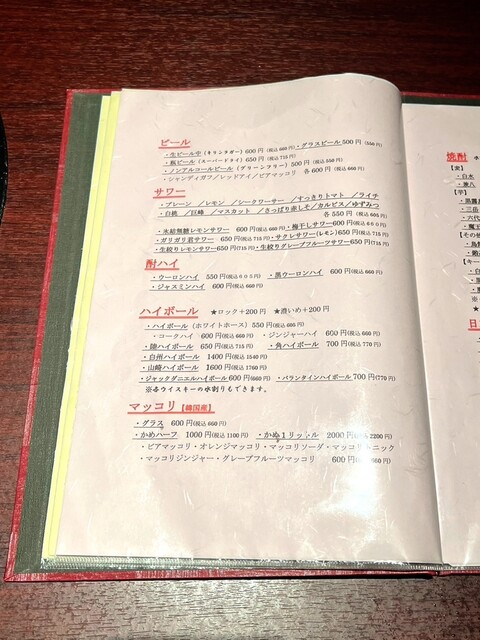 ビール
・生ビール中(キリンラガー)600円(税込660円)・グラスビール500円(550円)
・瓶ビール(スーパードライ)650円(税込715円)
・ノンアルコールビール(グリーンフリー)500円(税込550円)
・シャンディガフ/レッドアイ/ビアマッコリ 各600円(税込660円)
サワー
・プレーン /レモン /シークワーサー /すっきりトマト /ライチ
・白桃 /巨峰 /マスカット /さっぱり赤しそ/カルピス/ゆずみつ
各550円(税込605円)
・氷結無糖レモンサワー 600円(税込660円)・梅干しサワー600円(税込660円)
・ガリガリ君サワー 650円(税込715円)・サクレサワー(レモン)650円(税込715円)
・生絞りレモンサワー650円(税込715円)・生絞りグレープフルーツサワー650円(715円)
酎ハイ
・ウーロンハイ 550円(税込605円)・黒ウーロンハイ 600円(税込660円)
・ジャスミンハイ 600円(税込660円)
ハイボール ★ロック+200円 ★濃いめ+200円
・ハイボール(ホワイトホース)550円(税込605円)
・コークハイ 600円(税込660円)・ジンジャーハイ 600円(税込660円)
・陸ハイボール 650円(税込715円)・角ハイボール 700円(税込770円)
・白州ハイボール 1400円(税込1540円)
・山崎ハイボール 1600円(税込1760円)
・ジャックダニエルハイボール600円(660円)・バランタインハイボール700円(770円)
※各ウイスキーの水割りもできます。
マッコリ【韓国産】
・グラス 600円(税込660円)
・かめハーフ 1000円(税込1100円)・かめ1リットル 2000円(税込2200円)
・ビアマッコリ・オレンジマッコリ・マッコリソーダ・マッコリトニック
・マッコリジンジャー・グレープフルーツマッコリ 600円(税込660円)
焼酎
【麦】
・白水
・兼八
【芋】
・三岳
・六代
日